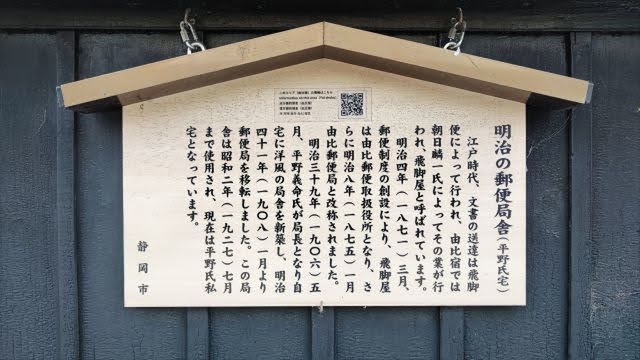 明治の郵便局舎(平野氏宅)
江戸時代、文書の送達は飛脚
便によって行われ、由比宿では
朝日麟一氏によってその業が行
われ、飛脚屋と呼ばれています。
明治四年(一八七一)三月、
郵便制度の創設により、飛脚屋
は由比郵便取扱役所となり、さ
らに明治八年(一八七五)一月
由比郵便局と改称されました。
明治三十九年(一九〇六)五
月、平野義命氏が局長となり自
宅に洋風の局舎を新築し、明治
四十一年(一九〇八)一月より
郵便局を移転しました。この局
舎は昭和二年(一九二七)七月
まで使用され、現在は平野氏私
宅となっています。
静岡市